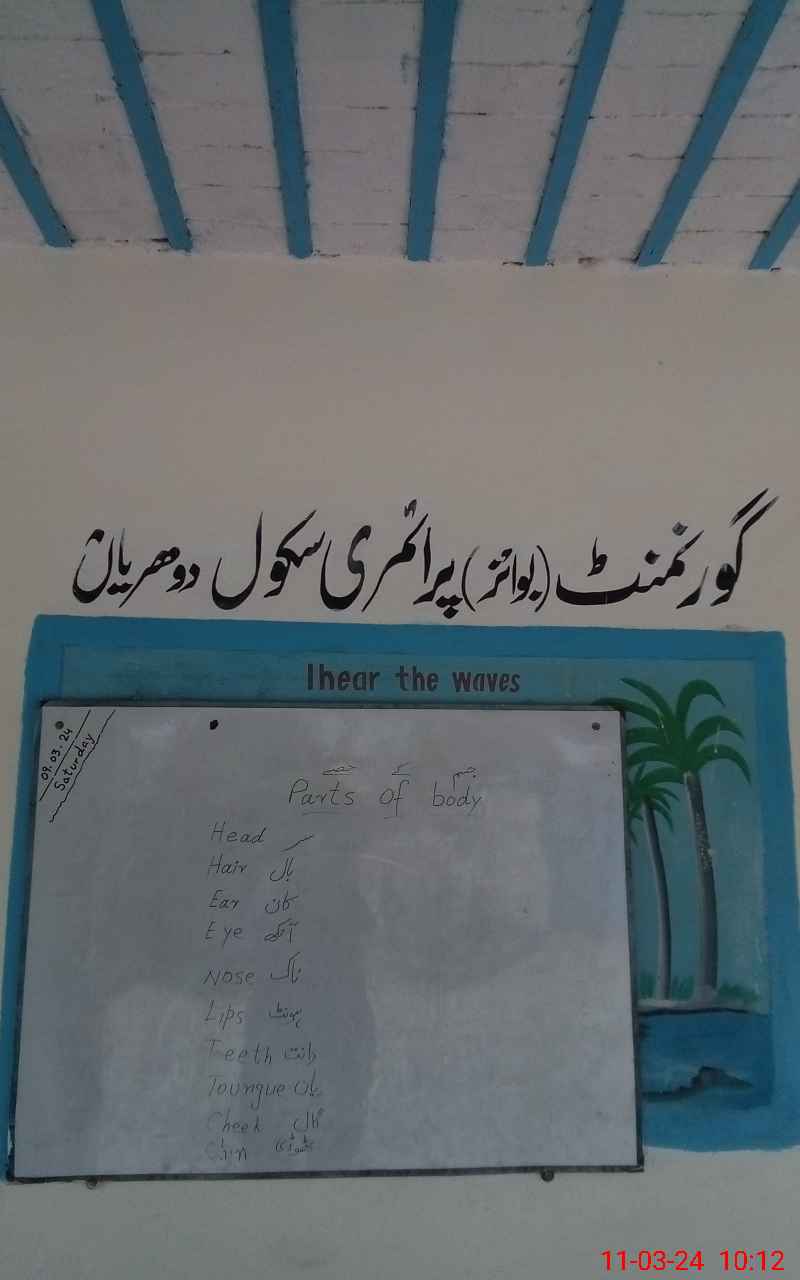 گورنمنٹ (بوائز) پرائمری سکول دوھریاں
I hear the waves
09.03.24
Saturday
جسم کے حصے
Parts of body
Head سر
Hair بال
Ear کان
Eye آنکھ
Nose ناک
Lips ہونٹ
Teeth دانت
Toungue
Cheek گال
Chin ٹھوڈی
11-03-24 10:12